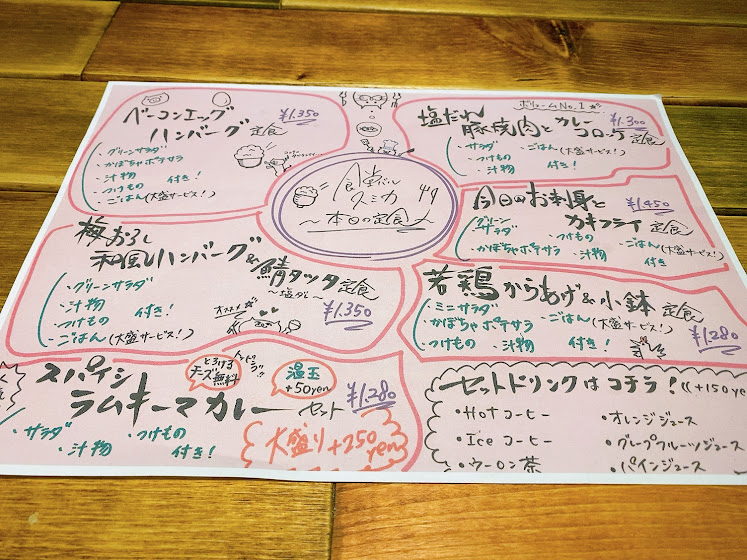 ベーコンエッグ
ハンバーグ 定食
¥1.350
・グリーンサラダ
・かぼちゃポテサラ
・汁物
・つけもの 付き!
・ごはん(大盛サービス!)
ボリュームNo.1
塩だれ
豚焼肉とカレー
コロッケ 定食
¥1.300
・サラダ
・つけもの
・汁物
・ごはん(大盛サービス!)
付き!
食堂バル
クミカ
〜本日の定食〜
今日のお刺身と
カキフライ 定食
¥1.450
・グリーン
サラダ
・かぼちゃポテサラ
・つけもの
・汁物
・ごはん(大盛サービス!)
付き!
梅おろし
和風ハンバーグ&
鯖タツタ 定食
〜塩ダレ〜
¥1.350
・グリーンサラダ
・汁物
・つけもの 付き!
・ごはん(大盛サービス!)
オススメ!
若鶏からあげ&小鉢 定食
¥1.280
・ミニサラダ
・かぼちゃポテサラ
・つけもの
・汁物
・ごはん(大盛サービス!)
付き!
スパイシー
ラムキーマカレーセット
とろける
チーズ無料
温玉
+50yen
¥1.280
・サラダ
・汁物
・つけもの
付き!
大盛り+250
yen
セットドリンクはコチラ! (+150
・Hot コーヒー
・Ice コーヒー
・ウーロン茶
・オレンジジュース
・グレープフルーツジュース
・パインジュース